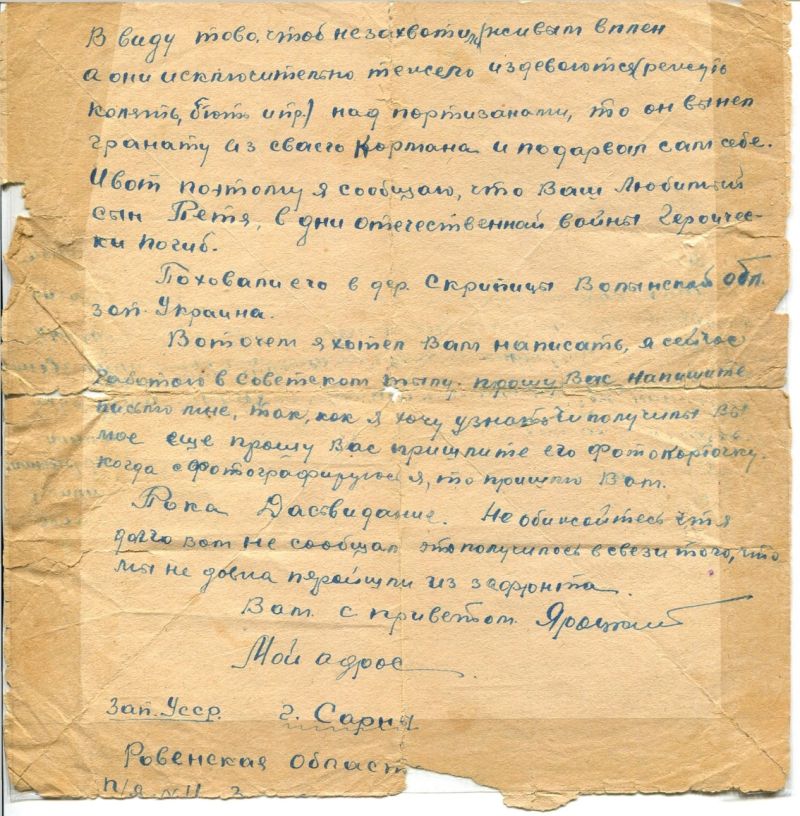 В виду тово, чтоб незахвотили живым вплен
а они исключительно тежело издеваются (режуть
колять, бють ипр.) над портизанами, то он вынел
гранату из сваего Кормана и подарвал сам себе.
Ивот поэтому я сообщаю, что Ваш Любимый
сын Петя, в дни отечественной войны Героичес-
ки погиб.
Поховали его в дер. Скрипицы Волынской обл.
зап. Украина.
Вот очем я хотел Вам написать, я сейчас
работаю в Советском тылу. прошу Вас напишите
письмо мне, так, как я хочу узнать чи получилы Вы
мое еще прошу Вас пришлите его фотокарточку.
когда сфотографируюся я, то пришлю Вам.
Пока Дасвидание. Не обижайтесь чтя
долго вам не сообщал это получилось всвези того, что
мы не довна перейшли из зафронта.
Вам с приветом Яроцкий
Мой адрес
Зап. Усср. г. Сарны
Ровенская област
п/я